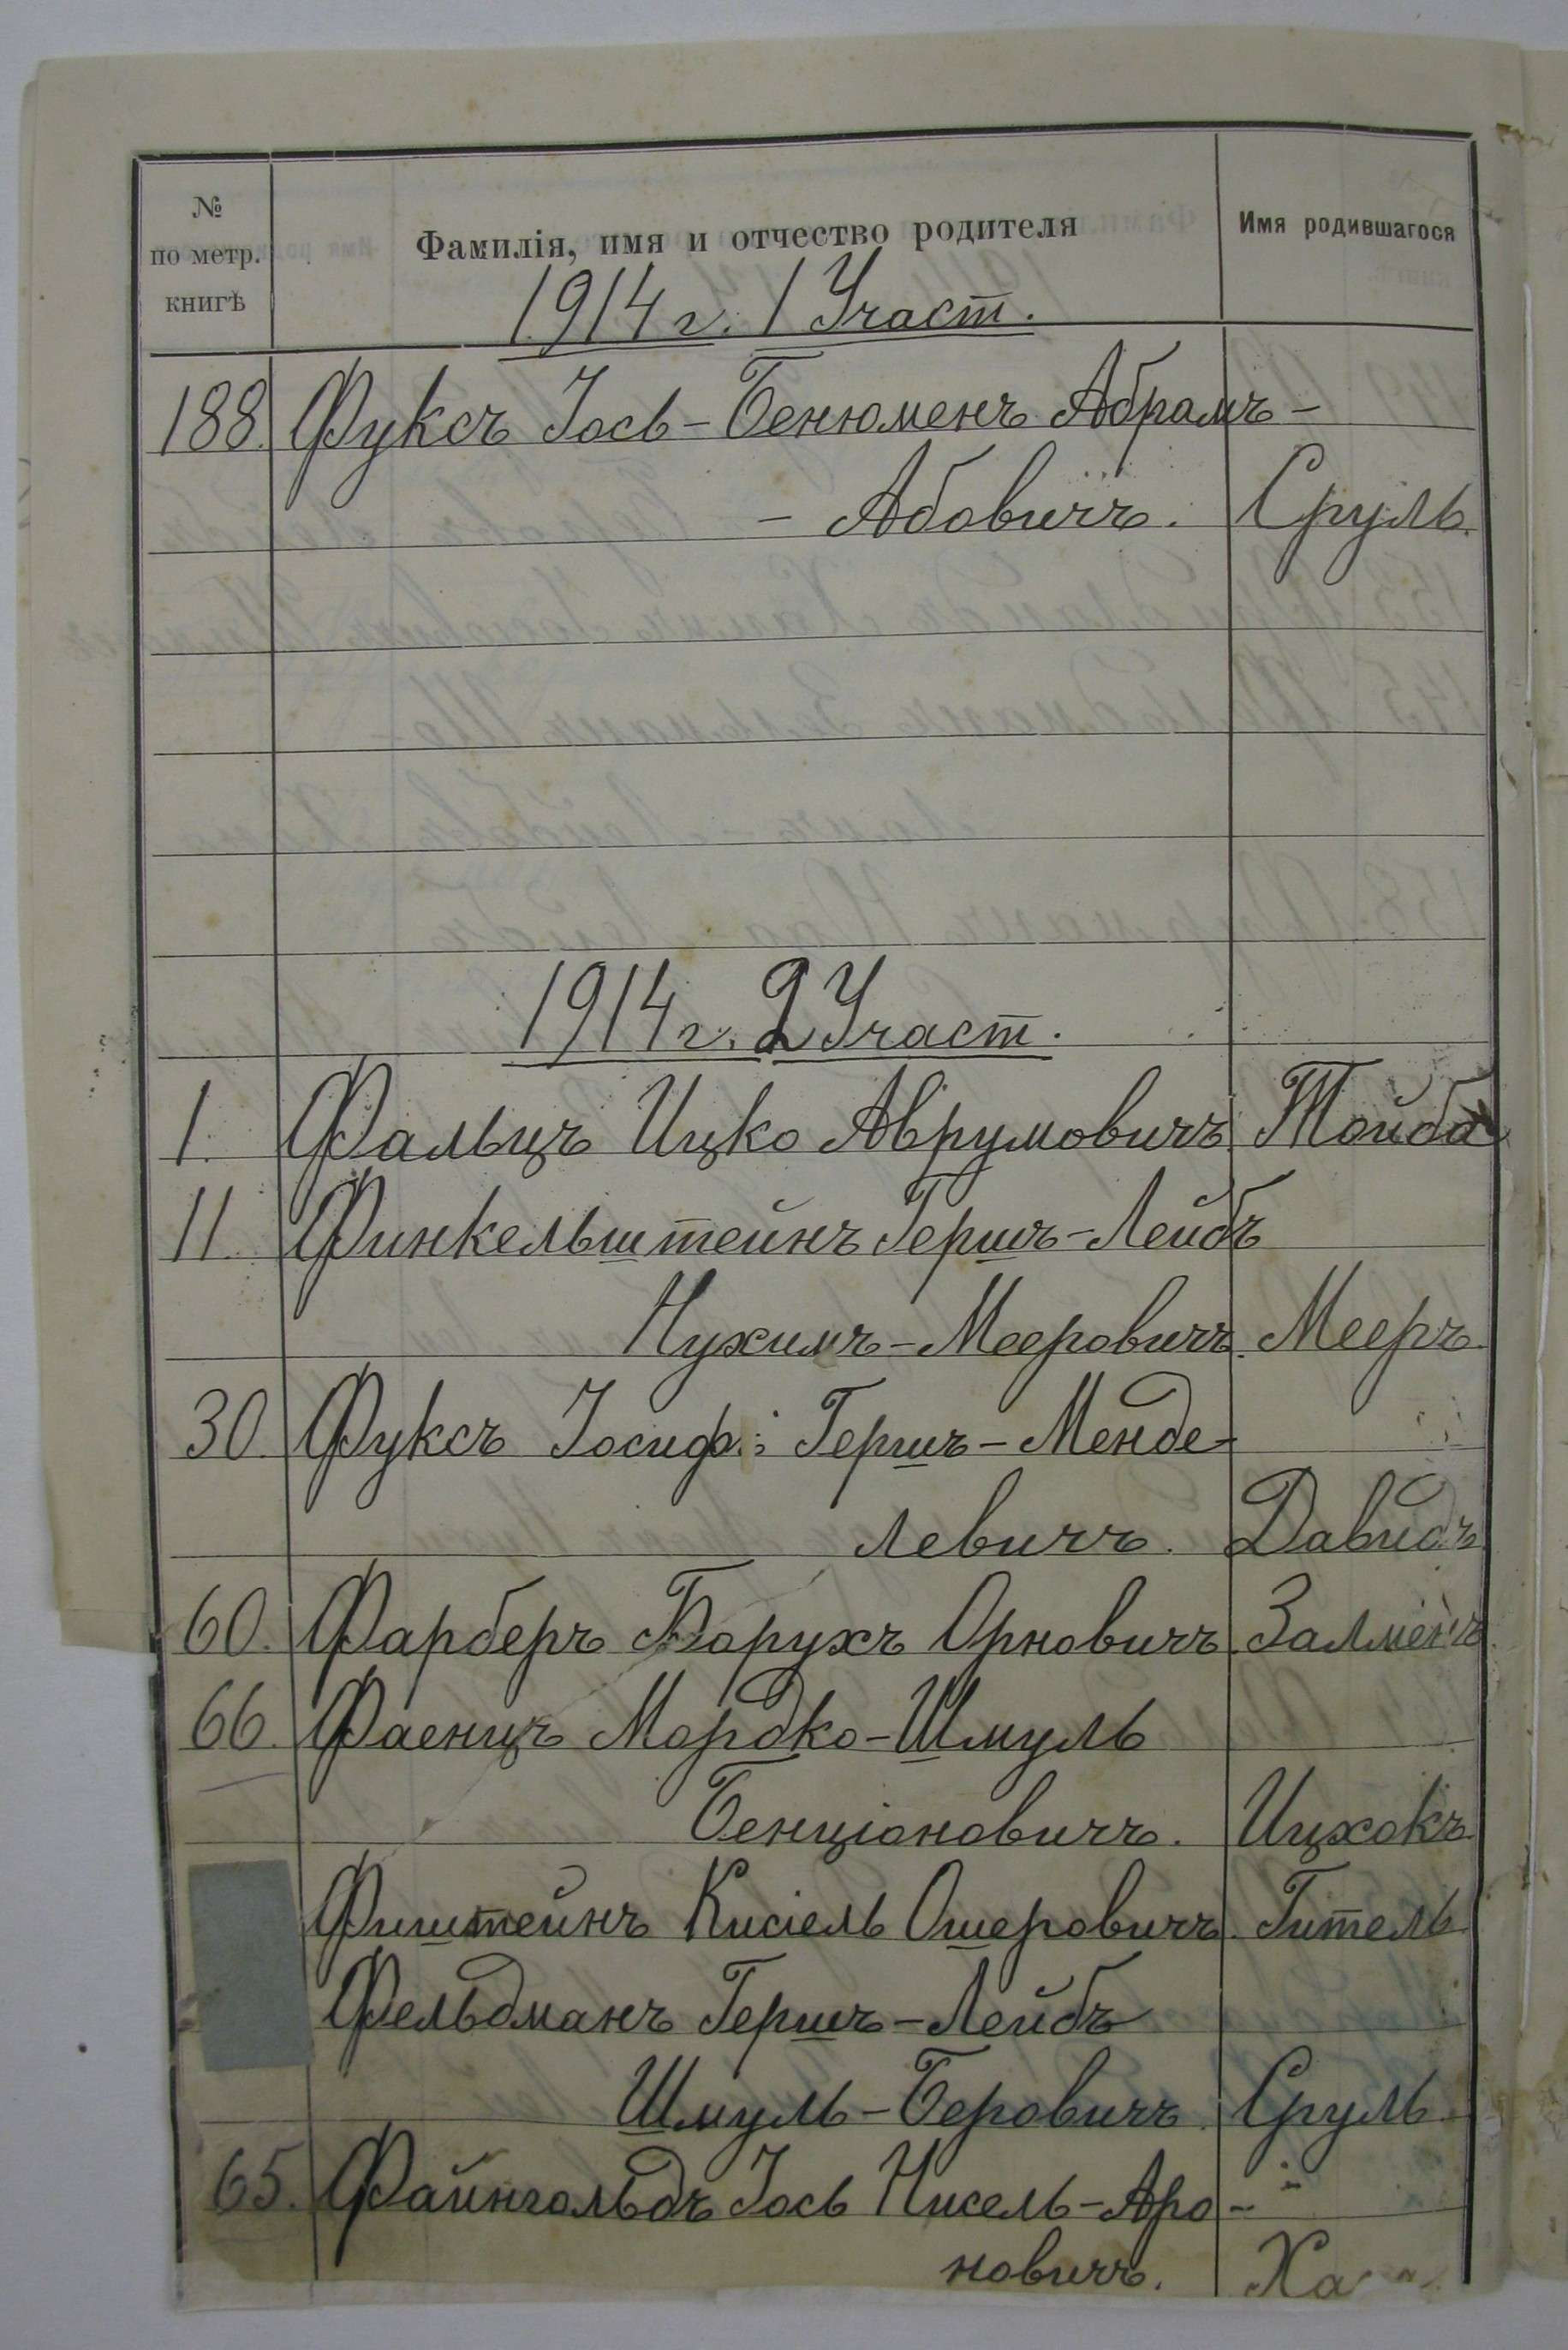 № по метр. книгѣ Фамилія, имя и отчество родителя Имя родившагося
1914 г. 1 Участ.
188. Фуксъ Іось-Бенюменъ Абрамъ-
- Абовичъ. Сруль.
1914 г. 2 Участ.
1. Фальцъ Ицко Аврумовичъ Тойба
11. Финкельштейнъ Гершъ-Лейбъ
Нухимъ-Мееровичъ. Мееръ.
30. Фуксъ Іосиф Гершъ-Менде-
левичъ. Давидъ
60. Фарберъ Борухъ Орновичъ. Залменъ
66. Фаенцъ Мордко-Шмуль
Бенціоновичъ. Ицхокъ.
Фиштейнъ Кисіель Ошеровичъ. Гитель.
Фельдманъ Гершъ-Лейбъ
Шмуль-Беровичъ. Сруль.
65. Файнгольдъ Іось Нисель-Аро-
новичъ.